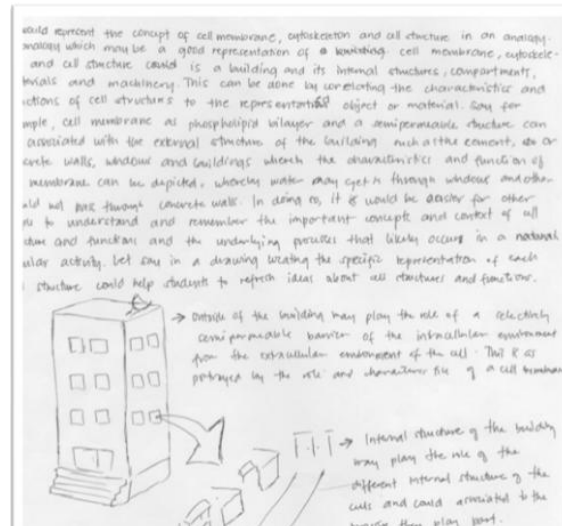 ould represent the concept of cell membrane, cytoskeleton and cell structure in an analogy.
analogy which may be a good representation of cell membrane, cytoskele-
and cell structure could is a building and its internal structures, compartments,
terials and machinery. This can be done by correlating the characteristics and
ctions of cell structures to the object or material. Say for
mple, cell membrane as phospholipid bilayer and a semipermeable structure can
associated with the external structure of the building such as the cement, or
crete walls, windows and buildings wherein the characteristics and function of
membrane can be depicted, whereby water may get in through windows and other
uld not pass through concrete walls. In doing so, it would be easier for other
to understand and remember the important concepts and context of cell
cture and functions and the underlying processes that likely occurs in a natural
ular activity. Let say in a drawing the specific representation of each
structure could help students to refresh ideas about cell structures and functions.
→ outside of the building may play the role of a selectively
semipermeable barrier of the intracellular environment
from the extracellular environment of the cell. This is as
portrayed by the role and of a cell membran
→ Internal structure of the building
may play the role of the
different internal structure of the
cells and could associated to the
they play part.